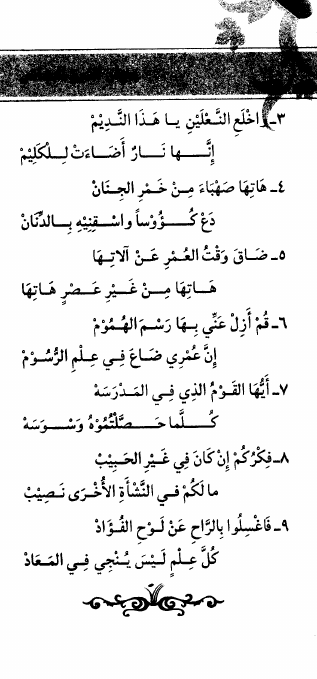 ٣ـ وَاخْلَعِ النَّعْلَيْنِ يـا هَـذَا النَّدِيْمْ
إِنَّـــهـا نَــارٌ أَضَـاءَتْ لِـلْكَلِيْمْ
٤ـ هَاتِهَا صَهْبَاءَ مِـنْ خَمْرِ الجِنَانْ
دَعْ كُـــؤُوْساً واسْـقِنِيْهِ بِـالدِّنَانْ
٥ـ ضَـاقَ وَقْتُ العُمْرِ عَـنْ آلاتِـهَا
هَــاتِهَا مِــنْ غَـيْرِ عَـصْرٍ هَـاتِهَا
٦ـ قُمْ أَزِلْ عَنِّي بِـهَا رَسْـمَ الهُمُوْمْ
إِنَّ عُمْرِي ضَاعَ فِـي عِـلْمِ الرُّسُوْمْ
٧ـ أَيُّهَا القَوْمُ الَّذِي فِـي المَـدْرَسَهْ
كُــلَّـما حَــصَّلْتُمُوْهُ وَسْــوَسَهْ
٨ـ فِكْرُكُمْ إِنْ كَانَ فِي غَيْرِ الحَبِيْبْ
ما لَكُمْ فـي النَّشْأَةِ الأُخْـرَى نَـصِيْبْ
٩ـ فَاغْسِلُوا بِالرَّاحِ عَنْ لَوْحِ الفُؤَادْ
كُلَّ عِلْمٍ لَـيْسَ يُـنْجِي فِـي المَعَادْ